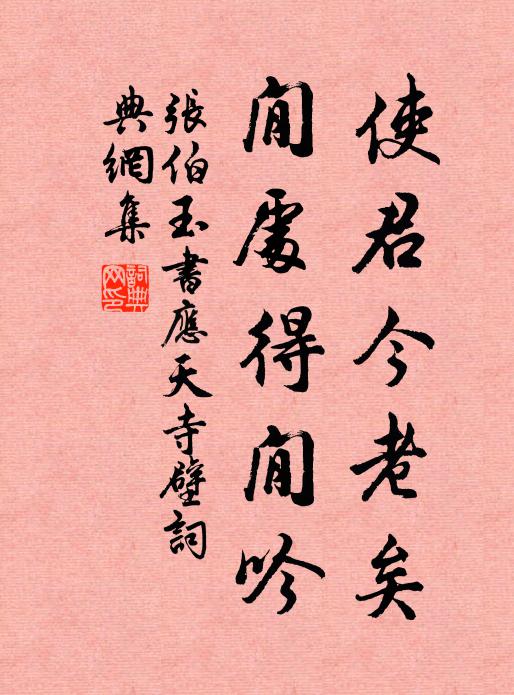 使君今老矣
閒處得閒吟
張伯玉書應天寺壁詞
典網集
詞典網印